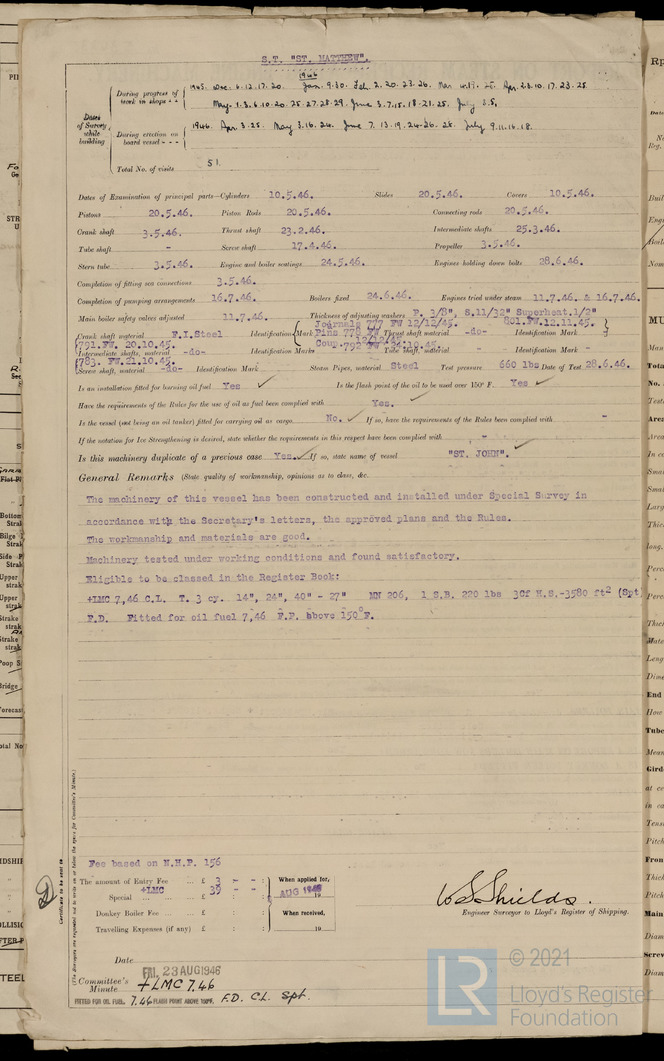 S.T. "ST. MATTHEW".
Dates of Survey while building
During progress of work in shops - -
1945. Dec. 6.12.17.20. 1946 Jan. 9.30. Feb. 2.20.23.26. Mar 25. Apr. 2.8.10.17.23.25.
May. 1.3.6.10.20.25.27.28.29. June 3.7.15.18.21.25. July 3.5.
During erection on board vessel - - -
1946. Apr. 3.25. May 3.16.24. June 7.13.19.24.26.28. July 9.11.16.18.
Total No. of visits 51.
Dates of Examination of principal parts—Cylinders 10.5.46. Slides 20.5.46. Covers 10.5.46.
Pistons 20.5.46. Piston Rods 20.5.46. Connecting rods 20.5.46.
Crank shaft 3.5.46. Thrust shaft 23.2.46. Intermediate shafts 25.3.46.
Tube shaft - Screw shaft 17.4.46. Propeller 3.5.46.
Stern tube 3.5.46. Engine and boiler seatings 24.5.46. Engines holding down bolts 28.6.46.
Completion of fitting sea connections 3.5.46.
Completion of pumping arrangements 16.7.46. Boilers fixed 24.6.46. Engines tried under steam 11.7.46. & 16.7.46.
Main boiler safety valves adjusted 11.7.46. Thickness of adjusting washers P. 1/8", S.11/32" Superheat.1/2"
Crank shaft material F.I.Steel Identification Mark Journals 777 FW 12/12/45. Pins 778 FW 12/12/45 Coup.792 FW.24.10.45. Thrust shaft material -do- Identification Mark 801.FW.12.11.45.
Intermediate shafts, material -do- Identification Marks 791.FW. 20.10.45. Tube shaft, material - Identification Mark -
783. FW.21.10.45.
Screw shaft, material -do- Identification Mark Steam Pipes, material Steel Test pressure 660 lbs Date of Test 28.6.46.
Is an installation fitted for burning oil fuel Yes Is the flash point of the oil to be used over 150° F. Yes
Have the requirements of the Rules for the use of oil as fuel been complied with Yes.
Is the vessel (not being an oil tanker) fitted for carrying oil as cargo. No. If so, have the requirements of the Rules been complied with -
If the notation for Ice Strengthening is desired, state whether the requirements in this respect have been complied with -
Is this machinery duplicate of a previous case Yes. If so, state name of vessel "ST. JOHN".
General Remarks (State quality of workmanship, opinions as to class, &c.
The machinery of this vessel has been constructed and installed under Special Survey in
accordance with the Secretary's letters, the approved plans and the Rules.
The workmanship and materials are good.
Machinery tested under working conditions and found satisfactory.
Eligible to be classed in the Register Book:
+LMC 7,46 C.L. T. 3 cy. 14", 24", 40" - 27" MN 206, 1 S.B. 220 lbs 3Cf H.S.-3580 ft² (Spt)
F.D. Fitted for oil fuel 7,46 F.P. above 150°F.
Fee based on N.H.P. 156
The amount of Entry Fee ... £ 3 - - : When applied for,
+LMC
Special ... £ 39 - - : AUG 1946 19
Donkey Boiler Fee ... £ : : When received,
Travelling Expenses (if any) £ : : 19
W S Shields.
Engineer Surveyor to Lloyd's Register of Shipping.
Date FRI. 23 AUG 1946
Committee's Minute +LMC 7.46
FITTED FOR OIL FUEL. 7.46 FLASH POINT ABOVE 150°F. F.D. CL. Spt.
Certificate to be sent to
(The Surveyors are requested not to write on or below the space for Committee's Minute.)
© 2021
LR Lloyd's Register
Foundation